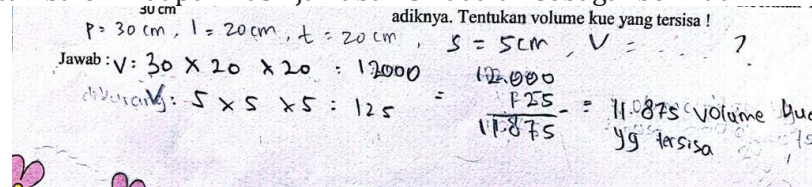 30 cm
adiknya. Tentukan volume kue yang tersisa !
P = 30 cm, l = 20 cm, t = 20 cm, S = 5 cm, V = ?
Jawab : V : 30 x 20 x 20 : 12000
dikurang : 5 x 5 x 5 : 125
= 12.000
125 -
11.875
= 11.875 volume kue
yg tersisa